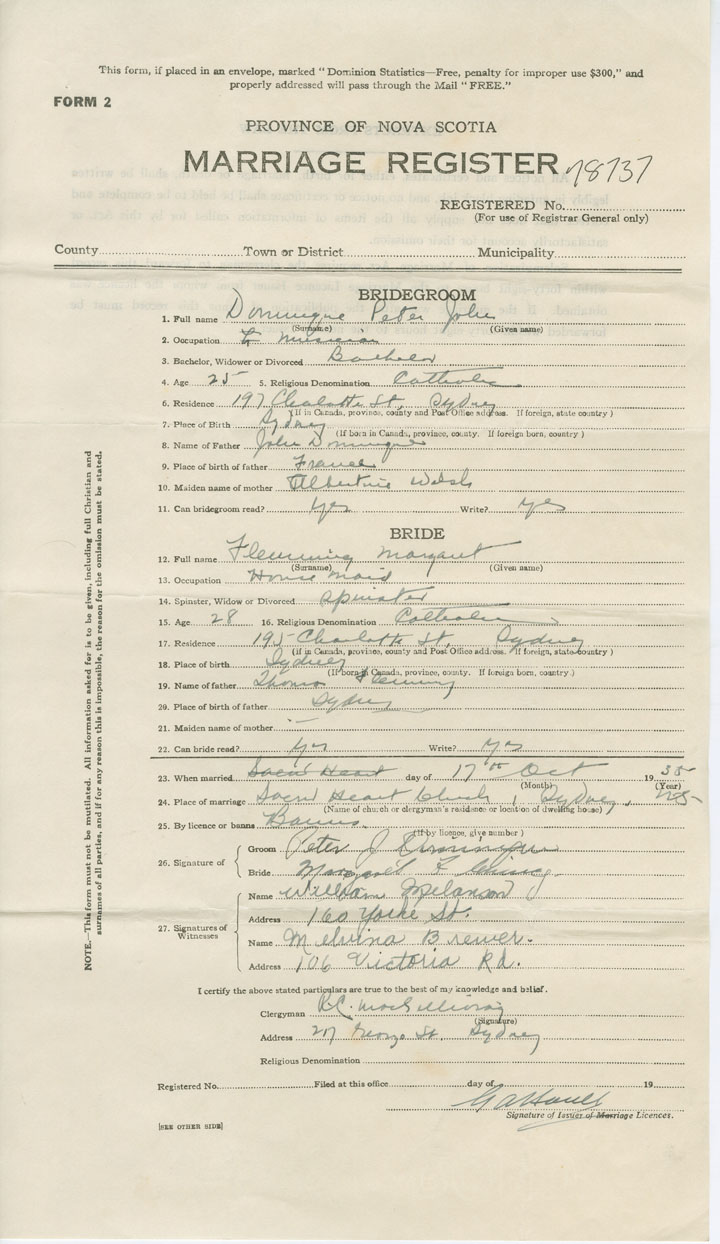 This form, if placed in an envelope, marked "Dominion Statistics—Free, penalty for improper use $300," and
properly addressed will pass through the Mail "FREE."
FORM 2
PROVINCE OF NOVA SCOTIA
MARRIAGE REGISTER 78737
REGISTERED No.
(For use of Registrar General only)
County Town or District Municipality
BRIDEGROOM
1. Full name Dominique Peter John
(Surname) (Given name)
2. Occupation Musician
3. Bachelor, Widower or Divorced Bachelor
4. Age 25 5. Religious Denomination Catholic
6. Residence 197 Charlotte St, Sydney
(If in Canada, province, county and Post Office address. If foreign, state country)
7. Place of Birth Sydney
(If born in Canada, province, county. If foreign born, country)
8. Name of Father John Dominique
9. Place of birth of father France
10. Maiden name of mother Albertine Welsh
11. Can bridegroom read? Yes Write? Yes
BRIDE
12. Full name Flemming Margaret
(Surname) (Given name)
13. Occupation House Maid
14. Spinster, Widow or Divorced Spinster
15. Age 28 16. Religious Denomination Catholic
17. Residence 195 Charlotte St, Sydney
(If in Canada, province, county and Post Office address. If foreign, state country)
18. Place of birth Sydney
(If born in Canada, province, county. If foreign born, country)
19. Name of father Thomas Flemming
20. Place of birth of father Sydney
21. Maiden name of mother —
22. Can bride read? Yes Write? Yes
23. When married Sacred Heart day of 17th Oct 1935
(Month) (Year)
24. Place of marriage Sacred Heart Church, Sydney, N.S.
(Name of church or clergyman's residence or location of dwelling house)
25. By licence or banns Banns
(If by licence, give number)
26. Signature of
Groom Peter J Dominique
Bride Margaret Flemming
27. Signatures of Witnesses
Name William Melanson
Address 160 Yorke St.
Name Melvina Brewer.
Address 106 Victoria Rd.
I certify the above stated particulars are true to the best of my knowledge and belief.
Clergyman R.C. MacGillivray
(Signature)
Address 217 George St. Sydney
Religious Denomination
Registered No. Filed at this office day of 19
Signature of Issuer of Marriage Licences.
[SEE OTHER SIDE]
NOTE.—This form must not be mutilated. All information asked for is to be given, including full Christian and
surnames of all parties, and if for any reason this is impossible, the reason for the omission must be stated.